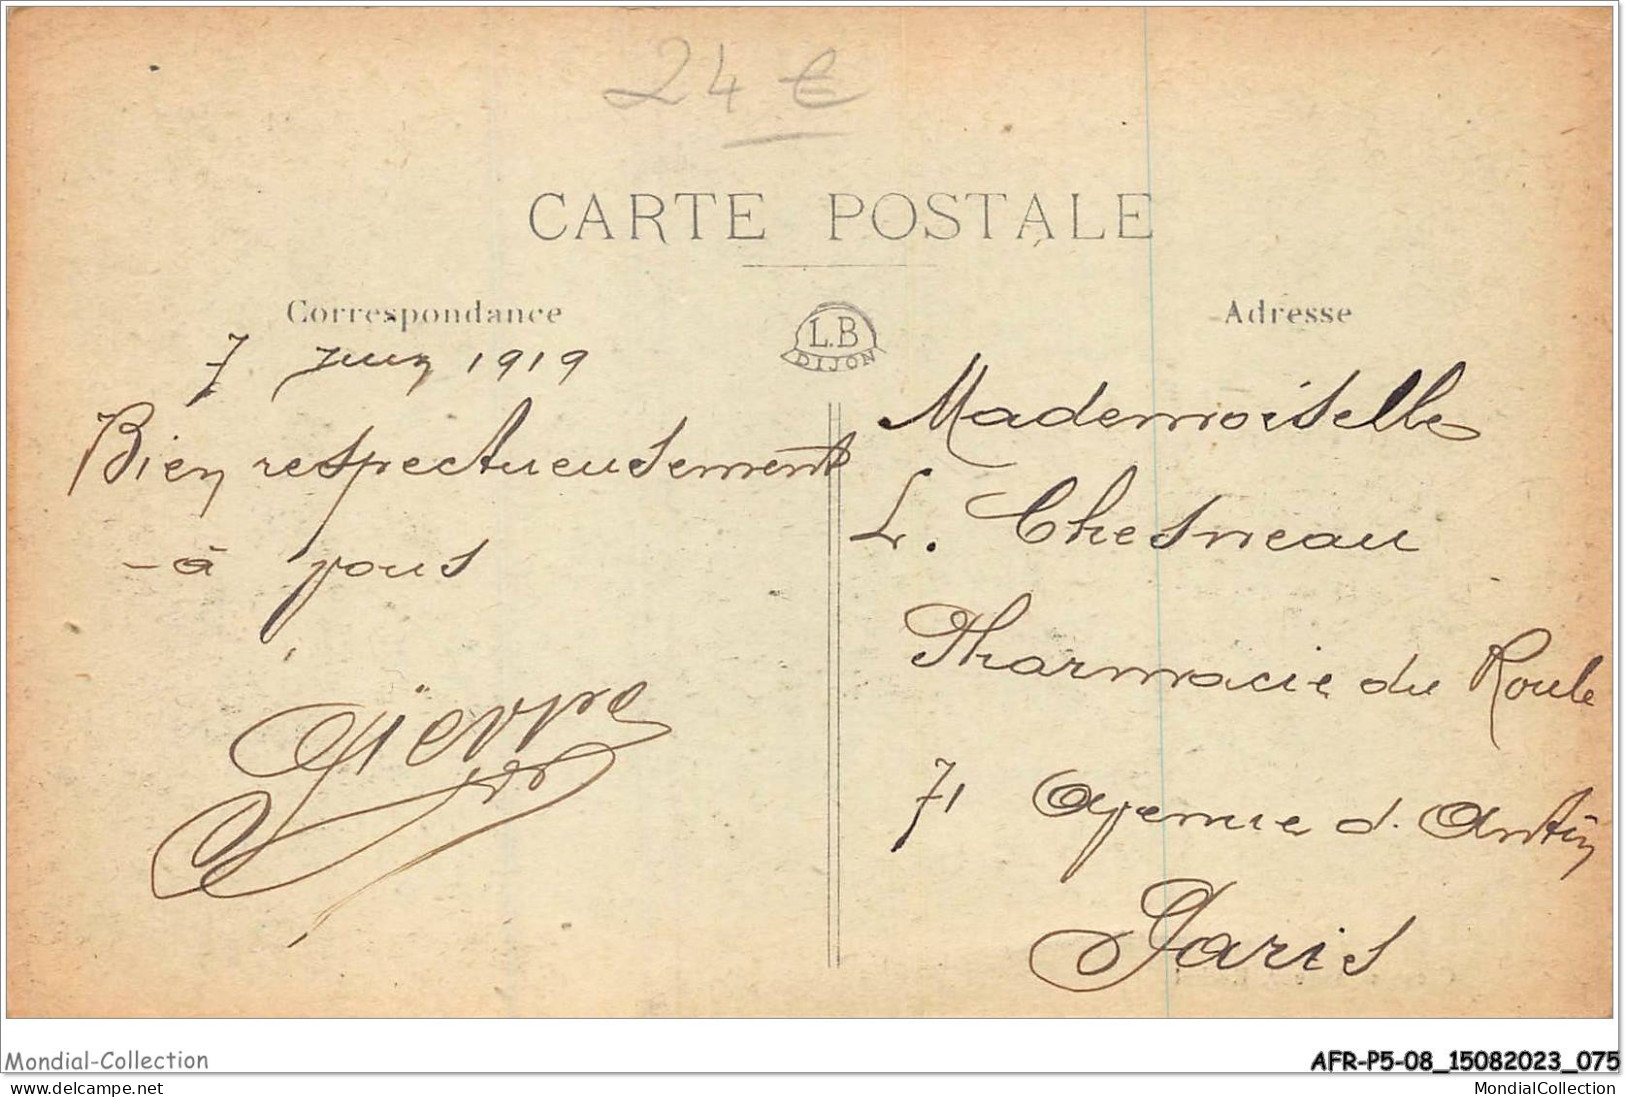 24 €
CARTE POSTALE
Correspondance
7 Juin 1919
Bien respectueusement
- à vous
L.B
DIJON
Adresse
Mademoiselle
L. Chesneau
Pharmacie du Roule
71 Avenue d. Antin
Paris
Mondial-Collection
www.delcampe.net
AFR-P5-08_15082023_075
MondialCollection